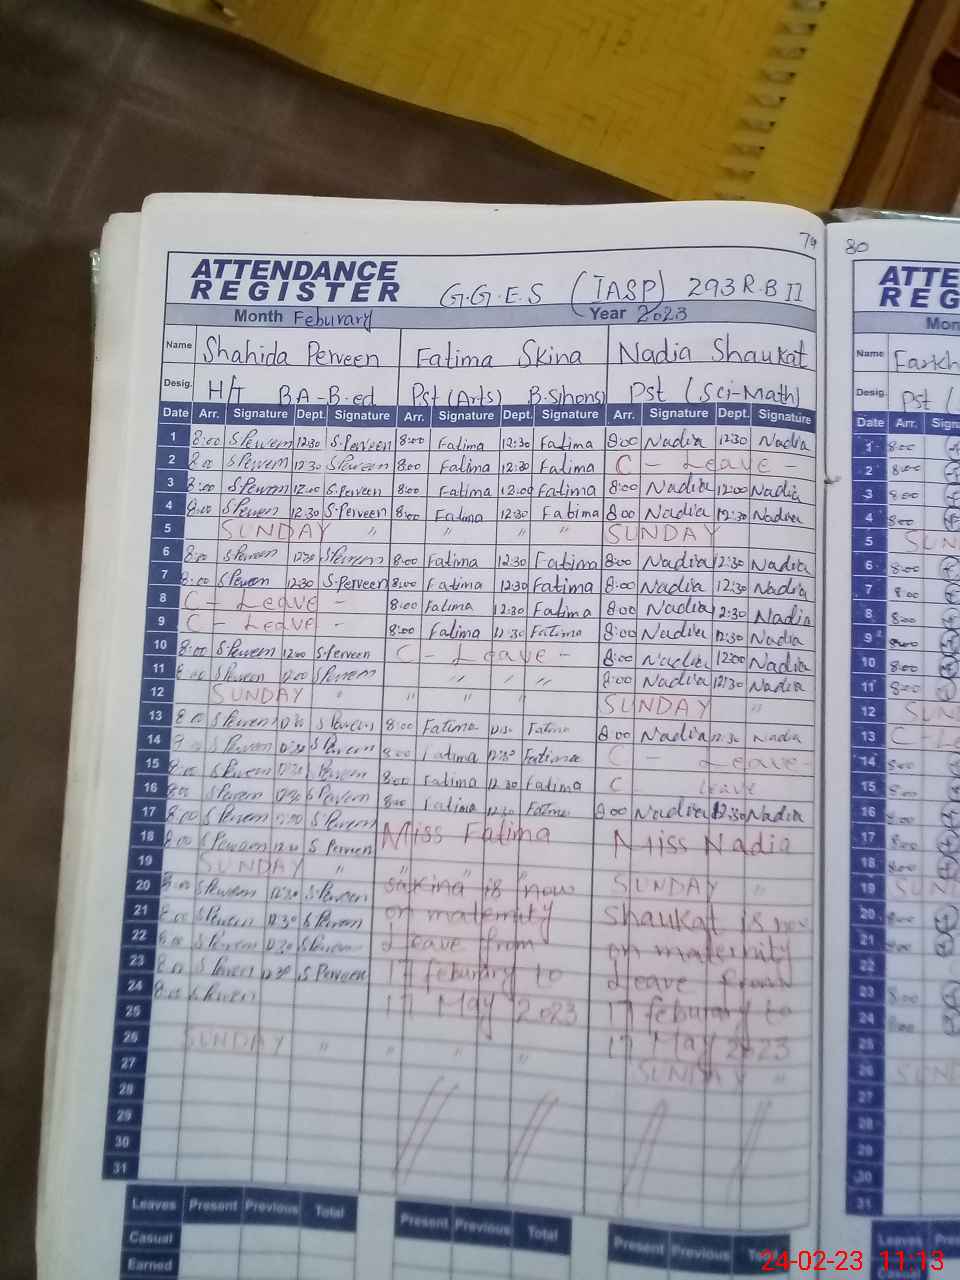 79
ATTENDANCE
REGISTER
G.G.E.S (IASP) 293 R.B II
Month Feburary Year 2023
Name Shahida Perveen Fatima Skina Nadia Shaukat
Desig. H/T BA-B.ed Pst (Arts) B.S(hons) Pst (Sci-Math)
Date Arr. Signature Dept. Signature Arr. Signature Dept. Signature Arr. Signature Dept. Signature
1 8:00 S.Perveen 12:30 S.Perveen 8:00 Fatima 12:30 Fatima 8:00 Nadia 12:30 Nadia
2 8:00 S.Perveen 12:30 S.Perveen 8:00 Fatima 12:30 Fatima C - Leave -
3 8:00 S.Perveen 12:00 S.Perveen 8:00 Fatima 12:00 Fatima 8:00 Nadia 12:00 Nadia
4 8:00 S.Perveen 12:30 S.Perveen 8:00 Fatima 12:30 Fatima 8:00 Nadia 12:30 Nadia
5 SUNDAY " " " " SUNDAY
6 8:00 S.Perveen 12:30 S.Perveen 8:00 Fatima 12:30 Fatima 8:00 Nadia 12:30 Nadia
7 8:00 S.Perveen 12:30 S.Perveen 8:00 Fatima 12:30 Fatima 8:00 Nadia 12:30 Nadia
8 C - Leave - 8:00 Fatima 12:30 Fatima 8:00 Nadia 12:30 Nadia
9 C - Leave - 8:00 Fatima 12:30 Fatima 8:00 Nadia 12:30 Nadia
10 8:00 S.Perveen 12:00 S.Perveen C - Leave - 8:00 Nadia 12:00 Nadia
11 8:00 S.Perveen 12:00 S.Perveen " " " 8:00 Nadia 12:30 Nadia
12 SUNDAY " " " " SUNDAY "
13 8:00 S.Perveen S.Perveen 8:00 Fatima 12:30 Fatima 8:00 Nadia 12:30 Nadia
14 S.Perveen 12:30 S.Perveen 8:00 Fatima 12:30 Fatima C - Leave -
15 8:00 S.Perveen 12:30 S.Perveen 8:00 Fatima 12:30 Fatima C - leave
16 8:00 S.Perveen 12:30 S.Perveen 8:00 Fatima 12:30 Fatima 8:00 Nadia 12:30 Nadia
17 8:00 S.Perveen 12:00 S.Perveen Miss Fatima Miss Nadia
18 8:00 S.Perveen S.Perveen
19 SUNDAY " " " " sakina is now SUNDAY "
20 8:00 S.Perveen 12:30 S.Perveen on maternity Shaukat is now
21 8:00 S.Perveen 12:30 S.Perveen Leave from on maternity
22 8:00 S.Perveen 12:30 S.Perveen 17 feburary to Leave from
23 8:00 S.Perveen 12:30 S.Perveen 17 May 2023 17 feburary to
24 8:00 S.Perveen 17 May 2023
25
26 SUNDAY " " " " SUNDAY "
27
28
29
30
31
Leaves Present Previous Total Present Previous Total Present Previous
Casual
Earned
80
Name
Desig. Pst (
Date Arr.
1 8:00
2 8:00
3 8:00
4 8:00
5
6 8:00
7 8:00
8 8:00
9
10 8:00
11 8:00
12
13
14 8:00
15 8:00
16 8:00
17 8:00
18 8:00
19
20 8:00
21 8:00
22
23 8:00
24 8:00
25
26
27
28
29
30
31
Leaves
24-02-23 11:13